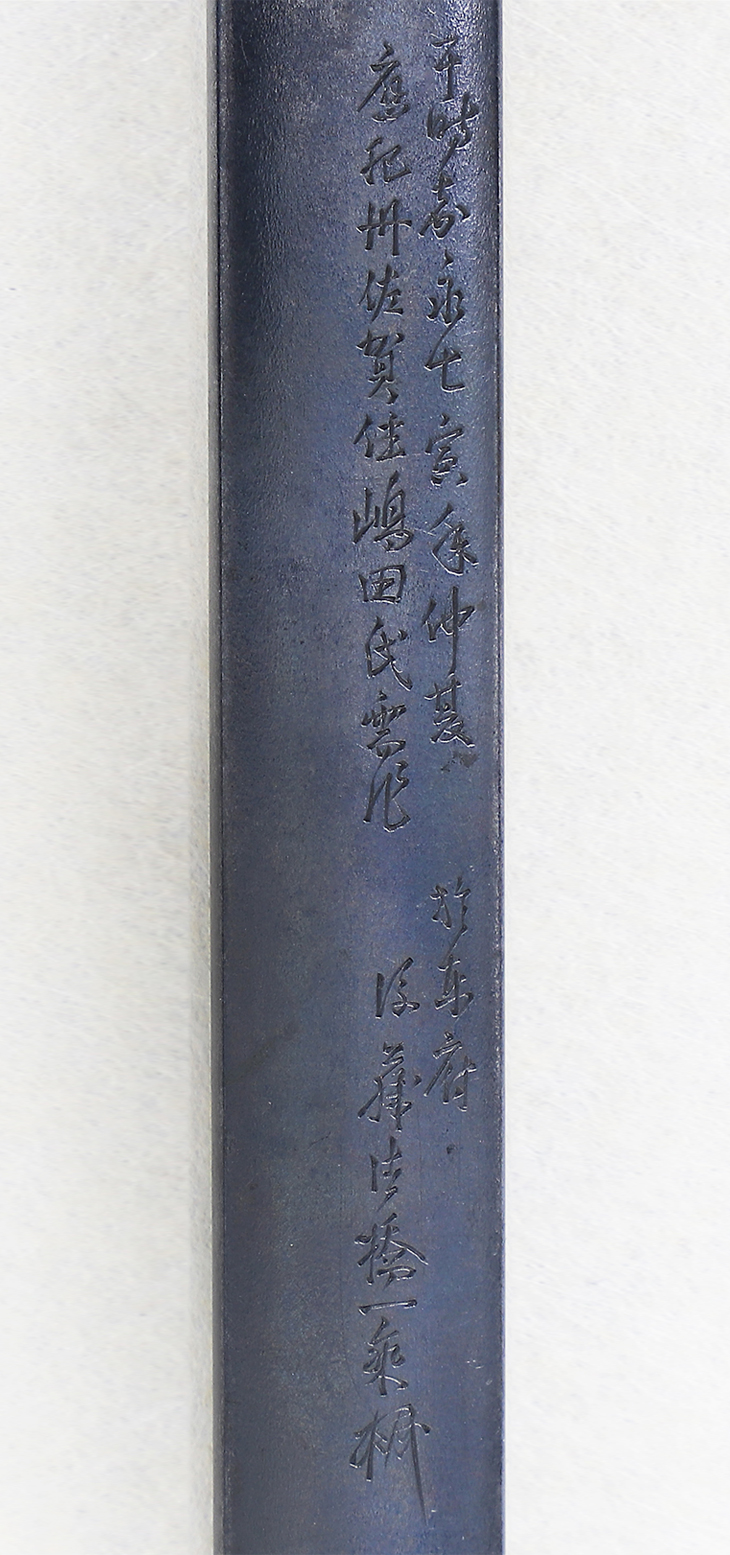 于時嘉永七寅年仲夏 於東府
應肥州佐賀住嶋田氏需作 後藤法橋一乗